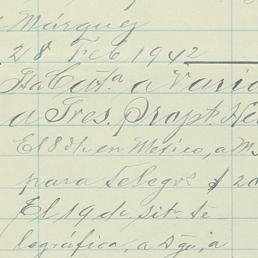 Márquez
28 Feb 1942
Sta Carta a Vario
a Sres. Propt. He
El 8 de en México, a M
para telegrs. $ 20
El 19 de, sit. te-
legráfica, a Dgo, a